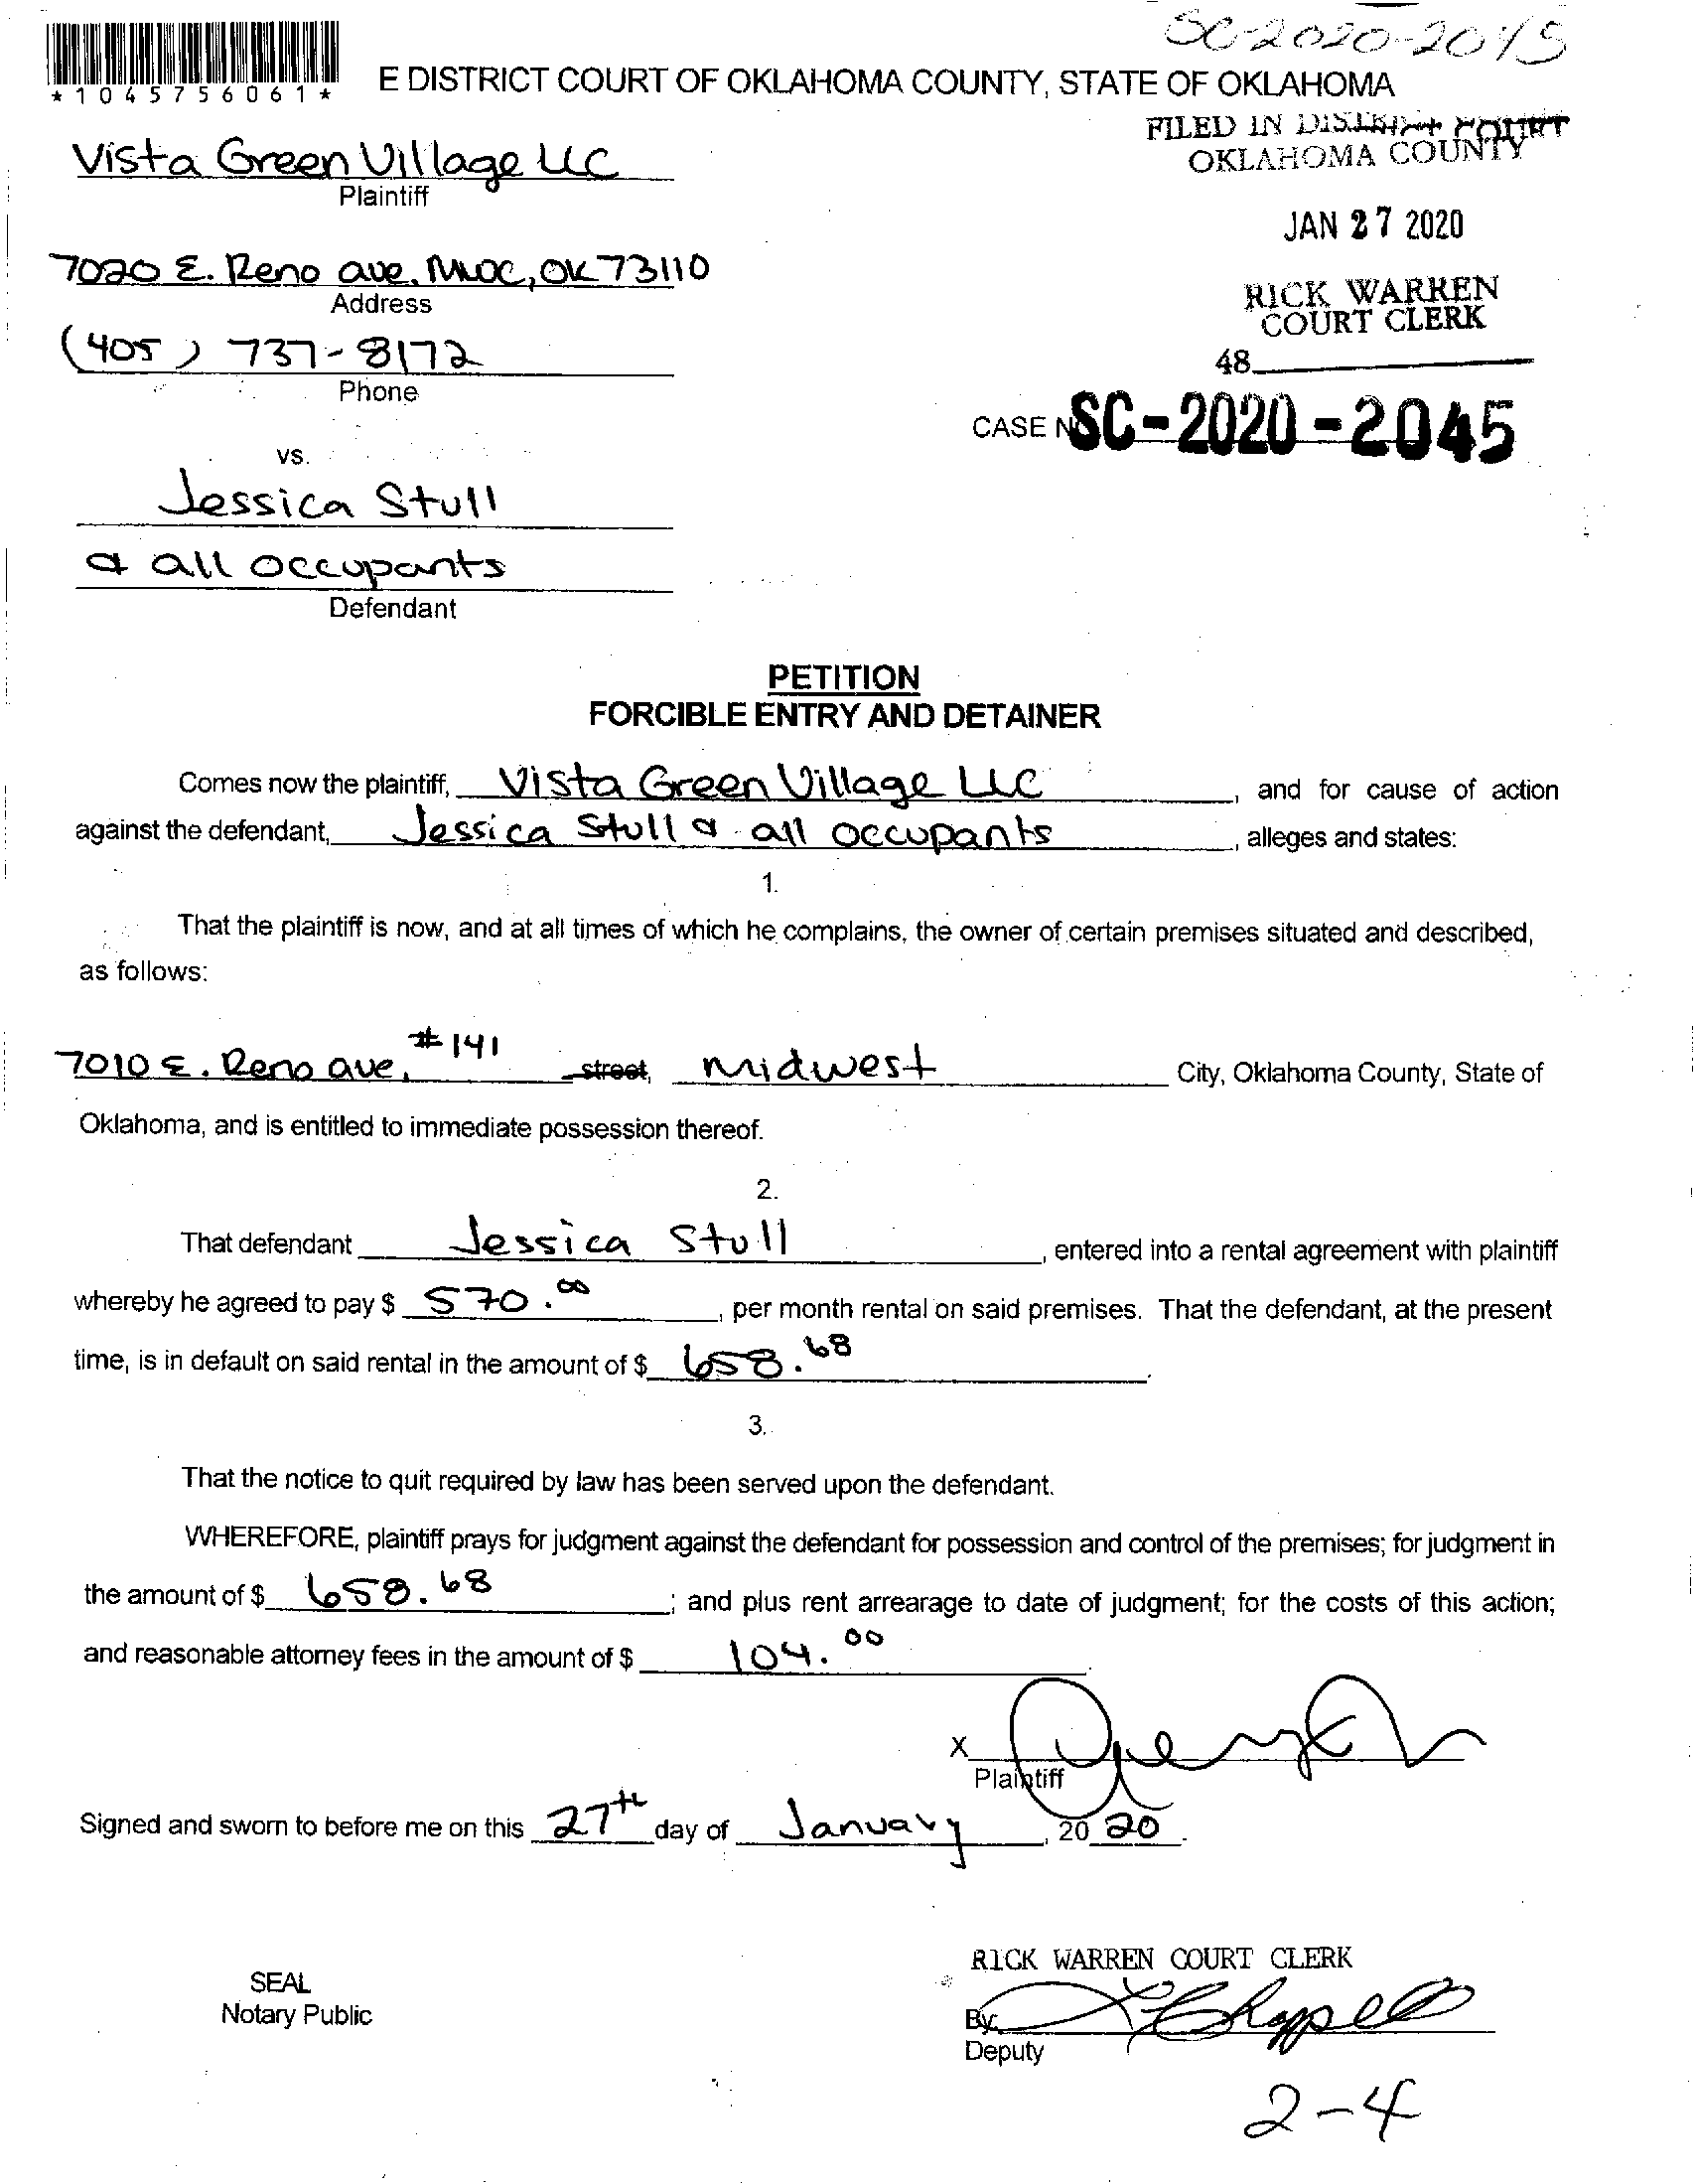 SC-2020-2045
*1045756061*
E DISTRICT COURT OF OKLAHOMA COUNTY, STATE OF OKLAHOMA
FILED IN DISTRICT COURT
OKLAHOMA COUNTY
Vista Green Village LLC
Plaintiff
JAN 27 2020
7020 E. Reno ave. MWC, OK 73110
Address
RICK WARREN
COURT CLERK
(405) 737-8172
Phone
48
CASE N SC-2020-2045
vs.
Jessica Stull
& all occupants
Defendant
PETITION
FORCIBLE ENTRY AND DETAINER
Comes now the plaintiff, Vista Green Village LLC, and for cause of action
against the defendant, Jessica Stull & all occupants, alleges and states:
1.
That the plaintiff is now, and at all times of which he complains, the owner of certain premises situated and described,
as follows:
7010 E. Reno ave. #141 street, midwest City, Oklahoma County, State of
Oklahoma, and is entitled to immediate possession thereof.
2.
That defendant Jessica Stull, entered into a rental agreement with plaintiff
whereby he agreed to pay $ 570.00, per month rental on said premises. That the defendant, at the present
time, is in default on said rental in the amount of $ 658.68.
3.
That the notice to quit required by law has been served upon the defendant.
WHEREFORE, plaintiff prays for judgment against the defendant for possession and control of the premises; for judgment in
the amount of $ 658.68; and plus rent arrearage to date of judgment; for the costs of this action;
and reasonable attorney fees in the amount of $ 104.00.
X
Plaintiff
Signed and sworn to before me on this 27th day of January, 2020.
RICK WARREN COURT CLERK
SEAL
Notary Public
By: Chappell
Deputy
2-4